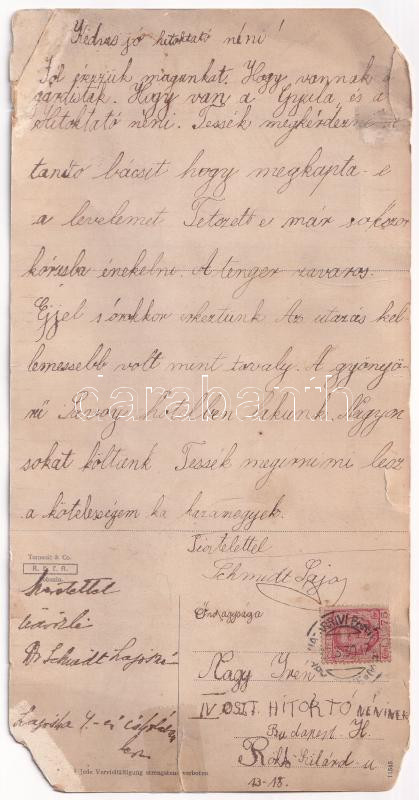 Kedves jó hitoktató néni!
Jól érezzük magunkat. Hogy vannak a
gartisták. Hogy van a Gyula és a
Hitoktató néni. Tessék megkérdezni a
tanító bácsit hogy megkapta-e
a levelemet Tetszett e már sokszor
kórusba énekelni. A tenger zavaros.
Éjjel órakkor erkeztunk Az utazás kel-
lemessebb volt mint tavaly. A gyönyö-
rü Savoy hotelben lakunk. Nagyon
sokat költünk. Tessék megirni mi lesz
a kötelességem ha hazamegyek.
Tisztelettel
Schmidt Lajos
Tornozit & Co.
Szeretettel
üdvözli
Dr Schmidt Lajosné
Önagysága
Nagy Irén
IV OSZT. HITOKTÓ NÉNINEK
Budapest. II.
Róth-Szilárd-u
13-15.
Jede Vervielfältigung strengstens verboten
carabanth